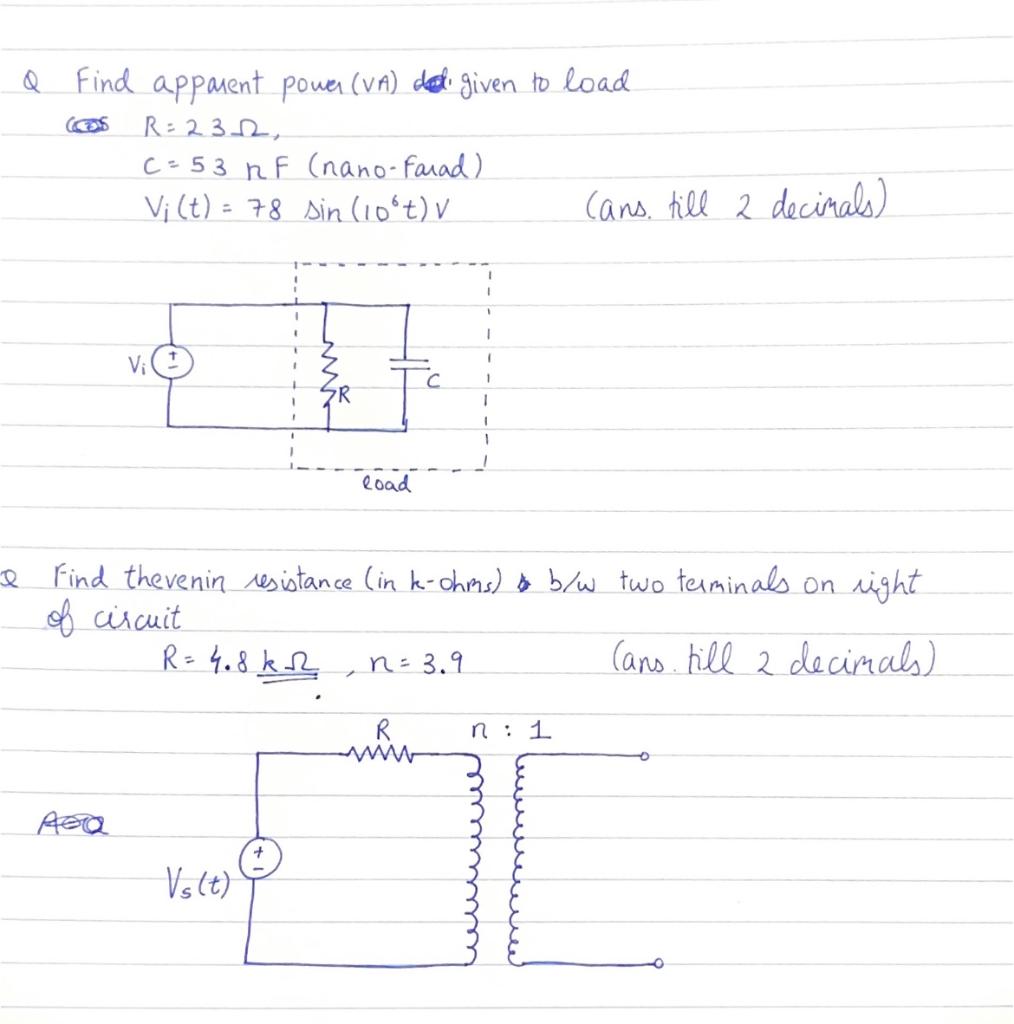 Q Find apparent power (VA) given to load
R = 23 Ω,
C = 53 nF (nano-Farad)
Vi(t) = 78 sin(10⁶t) V (ans. till 2 decimals)
Vi
+
-
R
C
load
Q Find thevenin resistance (in k-ohms) b/w two terminals on right
of circuit
R = 4.8 kΩ, n = 3.9 (ans. till 2 decimals)
R n : 1
+
-
Vs(t)